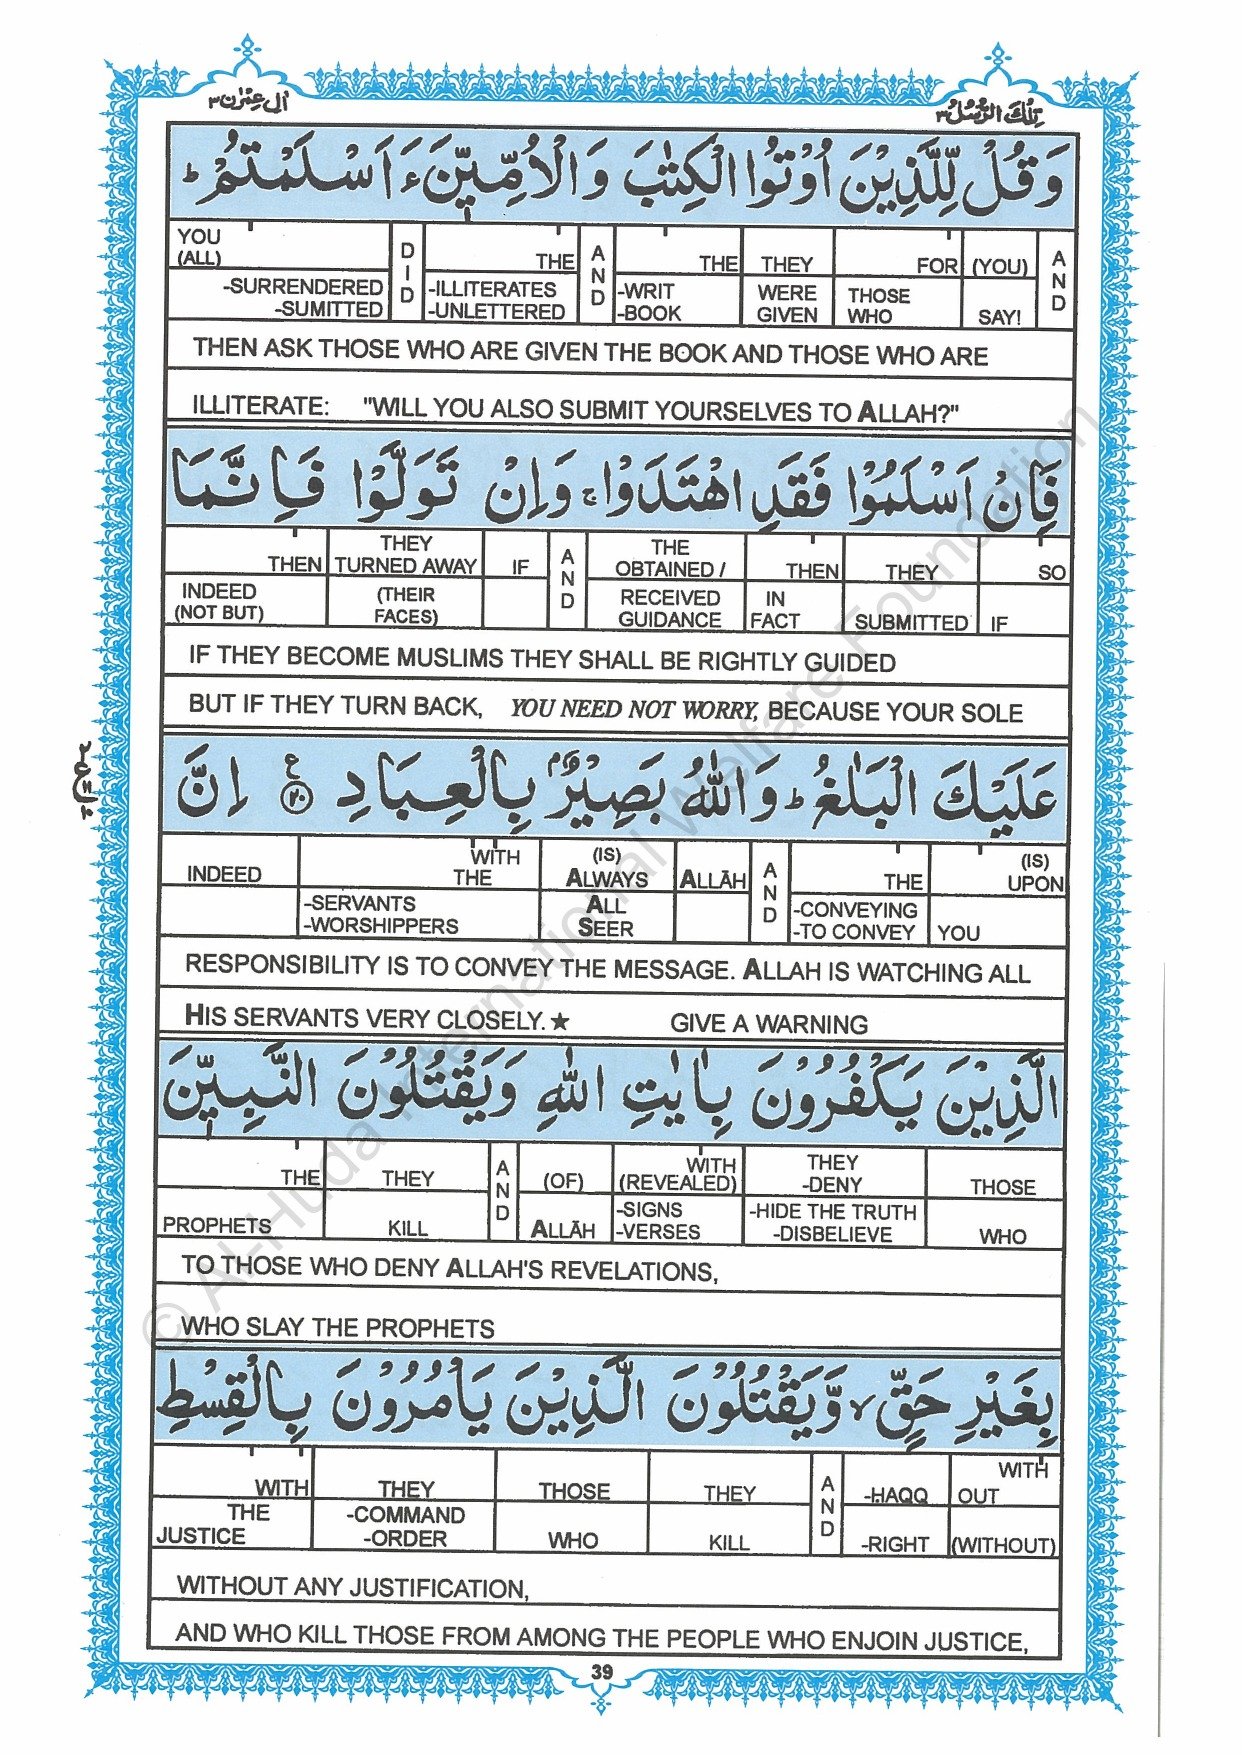 اٰل عِمْرٰن ٣
تِلْكَ الرُّسُلُ ٣
وَقُلْ لِّلَّذِيْنَ اُوْتُوا الْكِتٰبَ وَالْاُمِّيّٖنَ ءَاَسْلَمْتُمْ ؕ
YOU (ALL) | DID | THE | AND | THE | THEY | FOR | (YOU) | AND
-SURRENDERED -SUMITTED | -ILLITERATES -UNLETTERED | -WRIT -BOOK | WERE GIVEN | THOSE WHO | SAY!
THEN ASK THOSE WHO ARE GIVEN THE BOOK AND THOSE WHO ARE
ILLITERATE: "WILL YOU ALSO SUBMIT YOURSELVES TO ALLAH?"
فَاِنْ اَسْلَمُوْا فَقَدِ اهْتَدَوْا ۚ وَاِنْ تَوَلَّوْا فَاِنَّمَا
THEN | THEY TURNED AWAY | IF | AND | THE OBTAINED / | THEN | THEY | SO
INDEED (NOT BUT) | (THEIR FACES) | RECEIVED GUIDANCE | IN FACT | SUBMITTED | IF
IF THEY BECOME MUSLIMS THEY SHALL BE RIGHTLY GUIDED
BUT IF THEY TURN BACK, YOU NEED NOT WORRY, BECAUSE YOUR SOLE
عَلَيْكَ الْبَلٰغُ ؕ وَاللّٰهُ بَصِيْرٌۢ بِالْعِبَادِ ۝٢٠ اِنَّ
INDEED | WITH THE | (IS) ALWAYS | ALLĀH | AND | THE | (IS) UPON
-SERVANTS -WORSHIPPERS | ALL SEER | -CONVEYING -TO CONVEY | YOU
RESPONSIBILITY IS TO CONVEY THE MESSAGE. ALLAH IS WATCHING ALL
HIS SERVANTS VERY CLOSELY.★ GIVE A WARNING
الَّذِيْنَ يَكْفُرُوْنَ بِاٰيٰتِ اللّٰهِ وَيَقْتُلُوْنَ النَّبِيّٖنَ
THE | THEY | AND | (OF) | WITH (REVEALED) | THEY -DENY | THOSE
PROPHETS | KILL | ALLĀH | -SIGNS -VERSES | -HIDE THE TRUTH -DISBELIEVE | WHO
TO THOSE WHO DENY ALLAH'S REVELATIONS,
WHO SLAY THE PROPHETS
بِغَيْرِ حَقٍّ ۙ وَّيَقْتُلُوْنَ الَّذِيْنَ يَاْمُرُوْنَ بِالْقِسْطِ
WITH | THEY | THOSE | THEY | AND | -HAQQ | WITH OUT
THE JUSTICE | -COMMAND -ORDER | WHO | KILL | -RIGHT | (WITHOUT)
WITHOUT ANY JUSTIFICATION,
AND WHO KILL THOSE FROM AMONG THE PEOPLE WHO ENJOIN JUSTICE,
39
© Al-Huda International Welfare Foundation